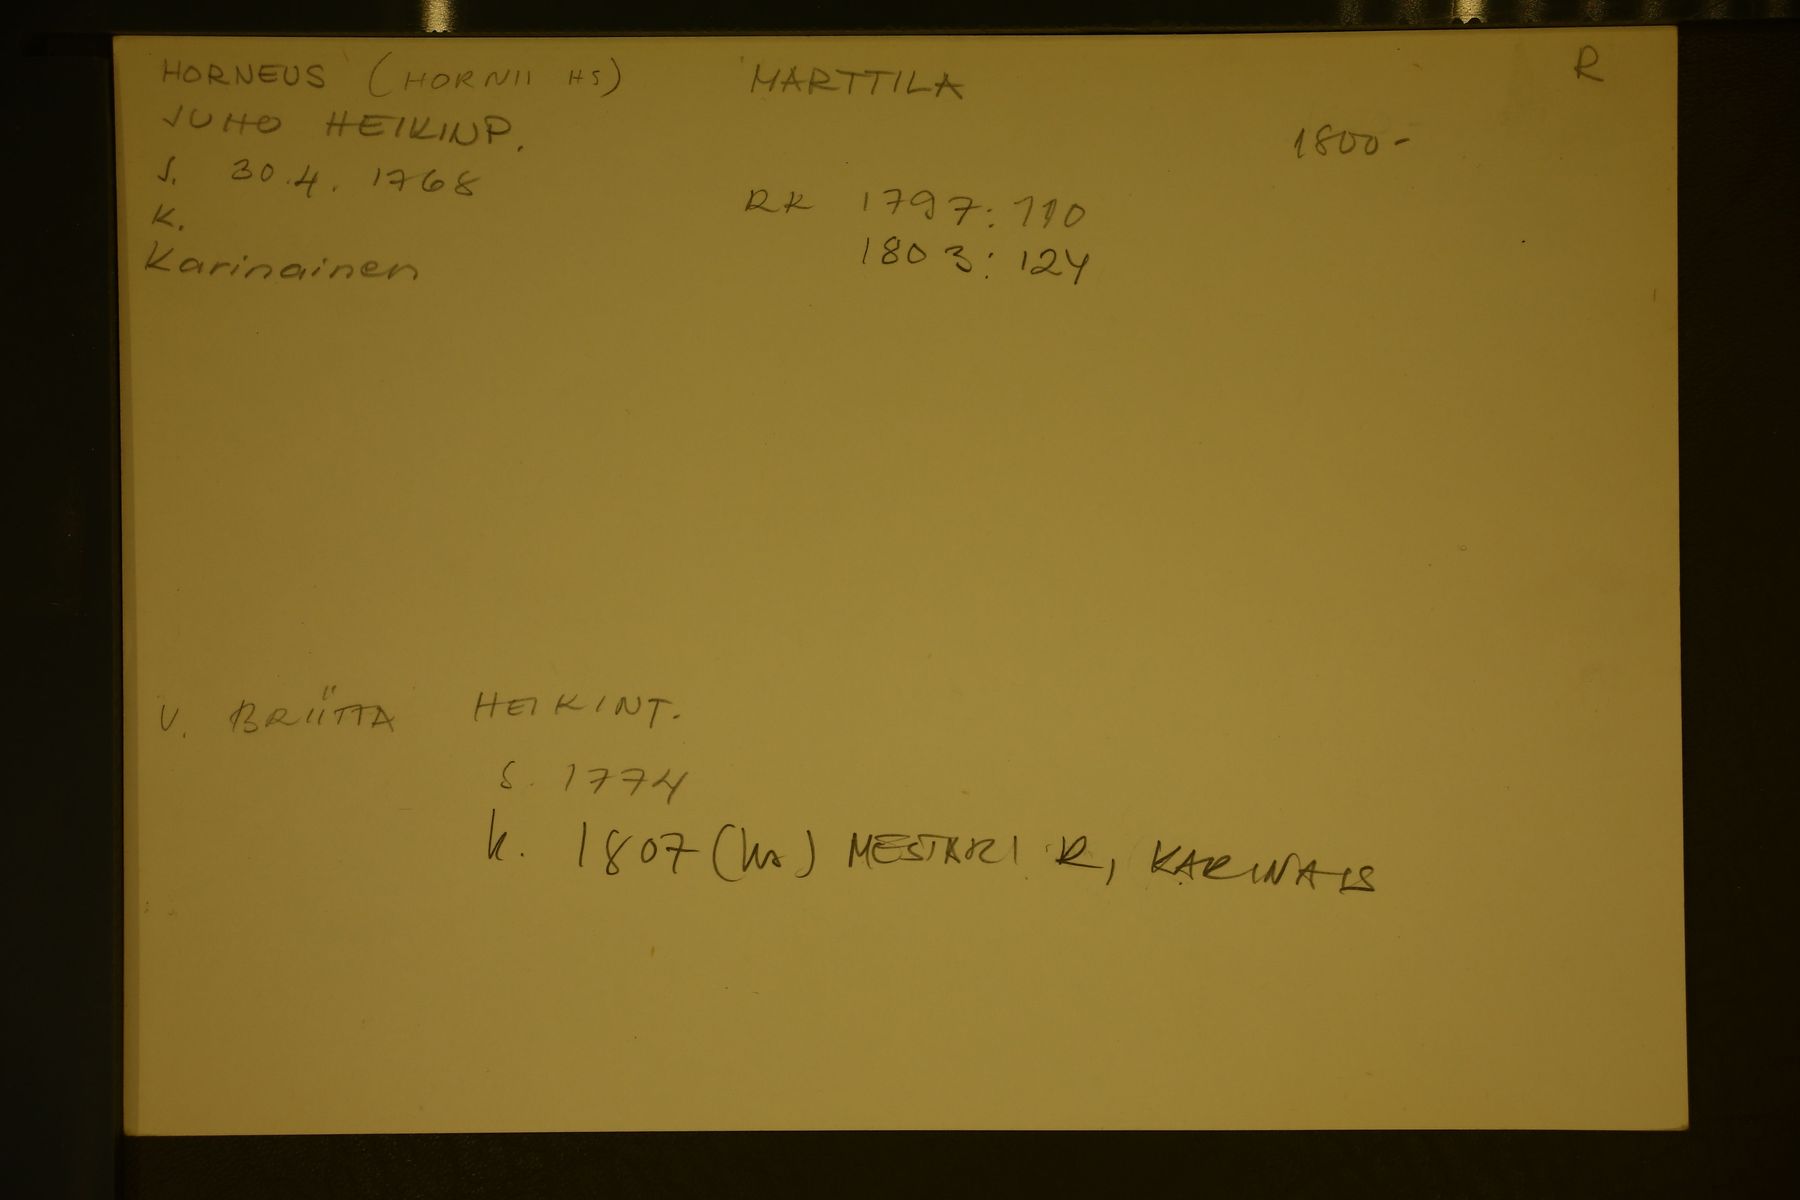 HORNEUS (HORNII HS) MARTTILA R
JUHO HEIKINP. 1800-
S. 30.4. 1768 RK 1797: 110
K. 1803: 124
Karinainen
V. BRIITTA HEIKINT.
S. 1774
k. 1807 (hs) MESTARI R, KARINAIS